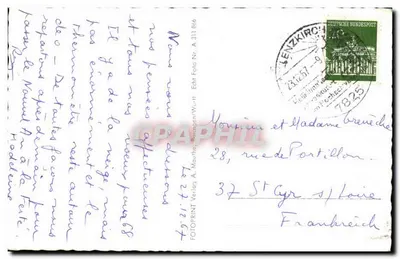 Le 27.12.67
Nous vous adressons
nos pensées affectueuses
et tous nos vœux pour 68
Il y a de la neige, mais
pas énormément et le
thermomètre reste autour
de 0 - De toutes façons nous
repartons après demain pour
passer le Nouvel An à la Ferté.
Madeleine
FOTOPRINT Verlag A.
Echt Foto Nr. A 311 868
LENZKIRCH
23.12.67
7825
DEUTSCHE BUNDESPOST
Monsieur et Madame
28, rue de Portillon
37 St Cyr s/Loire
Frankreich